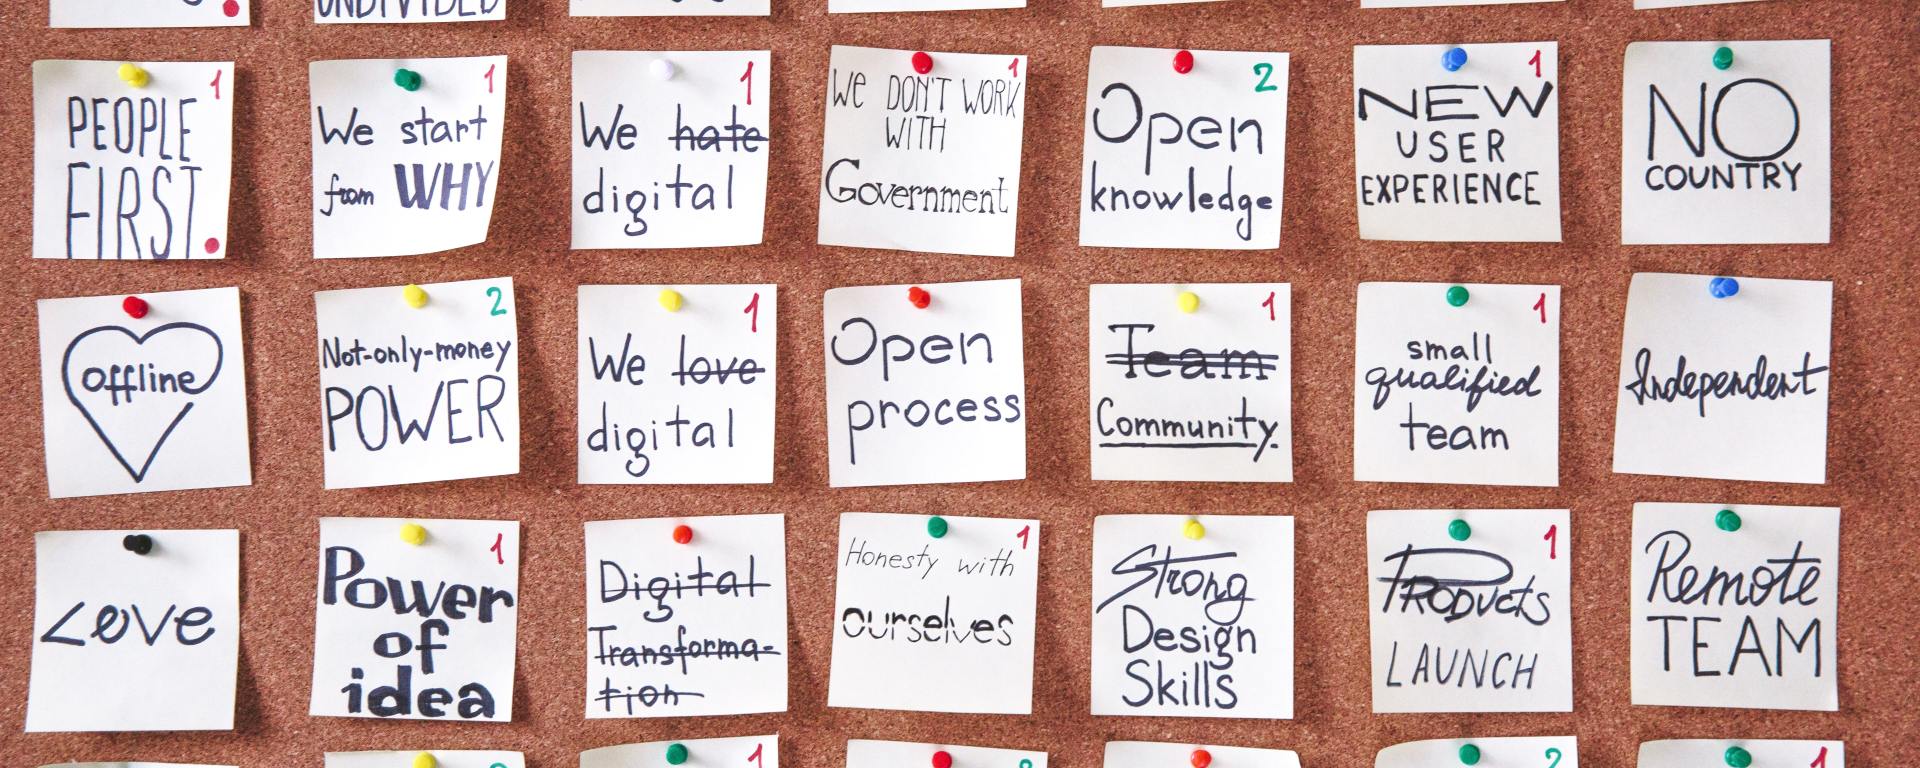 UNDIVIDED
1
PEOPLE
FIRST
1
We start
from WHY
1
We hate
digital
1
We DON'T WORK
WITH
Government
2
Open
knowledge
1
NEW
USER
EXPERIENCE
NO
COUNTRY
offline
2
Not-only-money
POWER
1
We love
digital
Open
process
1
Team
Community.
1
small
qualified
team
Independent
Love
1
Power
of
idea
Digital
Transforma-
tion
1
Honesty with
ourselves
Strong
Design
Skills
1
PRODUCTS
LAUNCH
Remote
TEAM
1
2
1